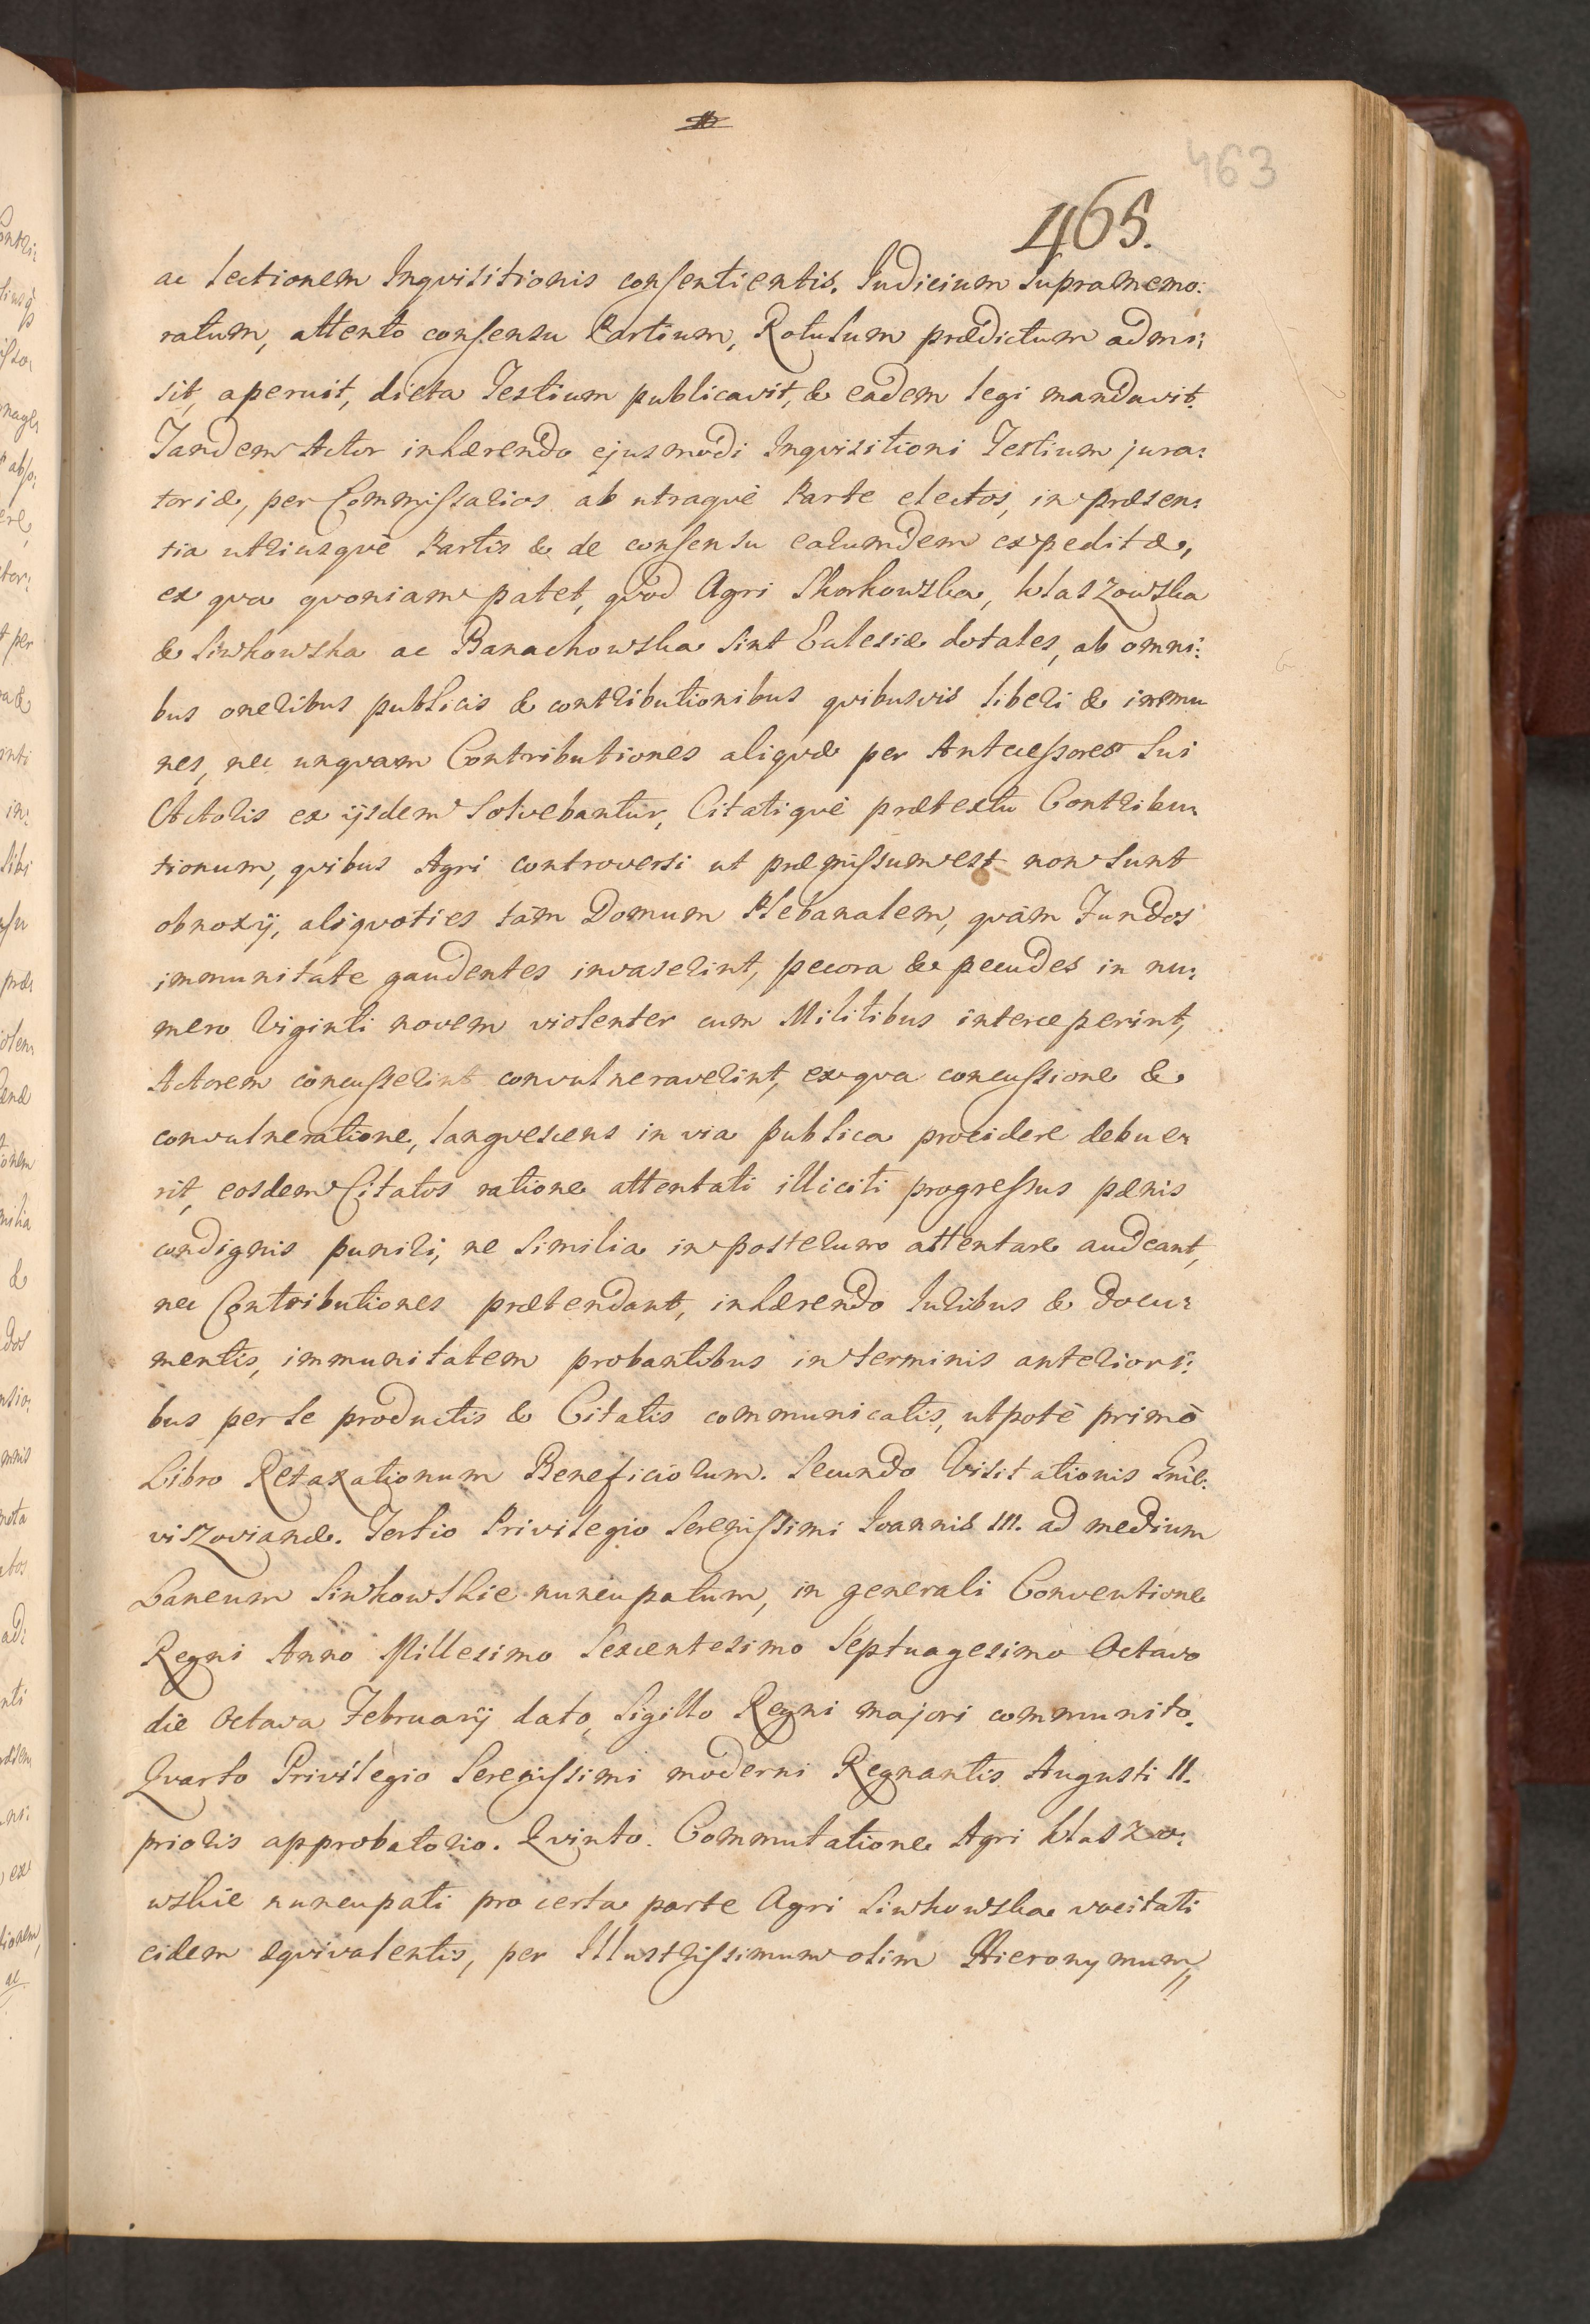 463
465.
ac lectionem Inqvisitionis consentientis. Iudicium supramemo:
ratum, attento consensu Partium, Rotulum prædictum admi:
sit, aperuit, dicta Testium publicavit, & eadem legi mandavit.
Tandem Actor inhærendo ejusmodi Inqvisitioni Testium jura:
toriæ, per Commissarios ab utraqvè Parte electos, in præsen:
tia utriusqvè Partis & de consensu earumdem expeditæ,
ex qva qvoniam patet, qvod Agri Skorkowska, Klaszowska
& Siwkowska ac Banachowska sint Eclesiæ dotales, ab omni:
bus oneribus publicis & contributionibus qvibusvis liberi & immu
nes, nec unqvam Contributiones aliqvæ per Antecessores sui
Actoris ex ijsdem solvebantur, Citatiqvè prætextu Contribu:
tionum, qvibus Agri controversi ut præmissum est non sunt
obnoxij, aliqvoties tàm Domum Plebanalem, qvàm Fundos
immunitate gaudentes invaserint, pecora & pecudes in nu:
mero Viginti novem violenter cum Militibus interceperint,
Actorem concusserint convulneraverint, ex qva concussione &
convulneratione, langvescens in via publica procidere debue:
rit, eosdem Citatos ratione attentati illiciti progressus pænis
condignis puniri, ne similia in posterum attentare audeant,
nec Contributiones prætendant, inhærendo Iuribus & Docu:
mentis, immunitatem probantibus in terminis anteriori:
bus per se productis & Citatis communicatis, utpotè primò
Libro Retaxationum Beneficiorum. Secundo Visitationis
viszovianæ. Tertio Privilegio Serenissimi Ioannis III. ad medium
Laneum Siwkowskie nuncupatum, in generali Conventione
Regni Anno Millesimo Sexcentesimo Septuagesimo Octavo
die Octava Februarij dato, Sigillo Regni majori communito.
Qvarto Privilegio Serenissimi moderni Regnantis Augusti II.
prioris approbatorio. Qvinto. Commutatione Agri Klaszo:
wskie nuncupati pro certa parte Agri Siwkowska vocitati
eidem æqvivalentis, per Illustrissimum olim Hieronymum